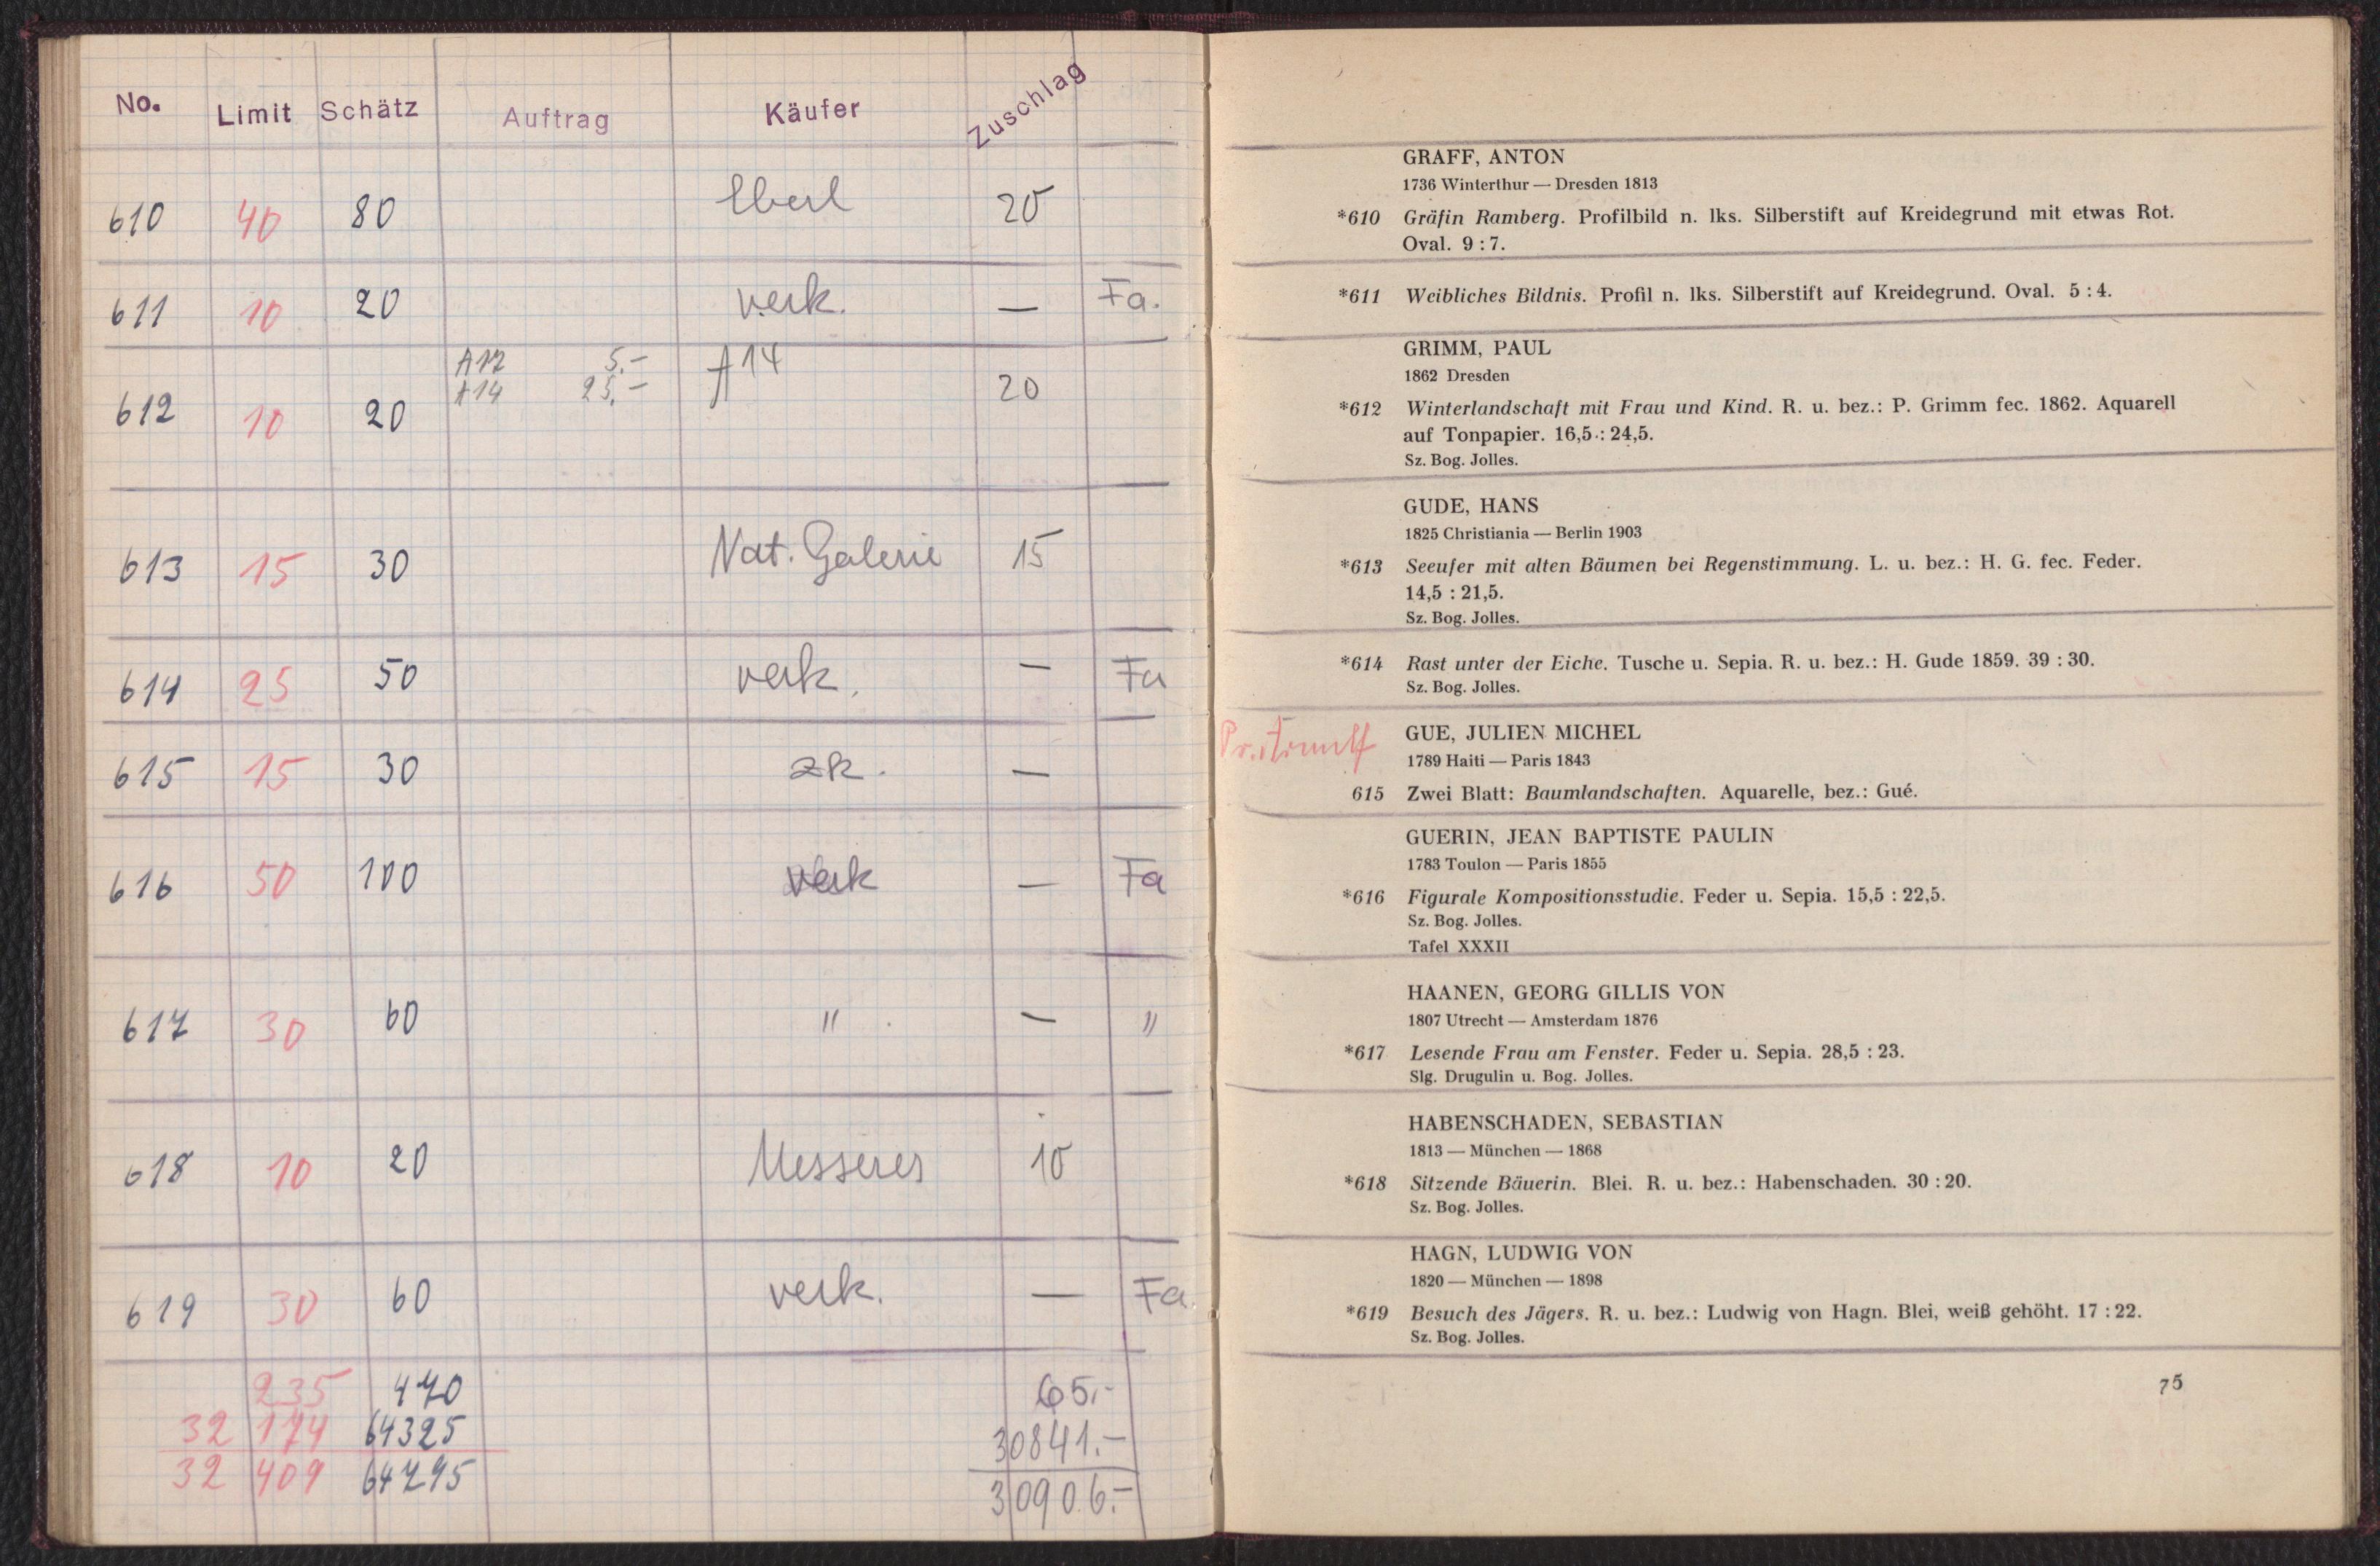 No. Limit Schätz Auftrag Käufer Zuschlag
610 40 80 Eberl 20
611 10 20 verk. — Fa.
A12 5.–
A14 25.–
612 10 20 A14 20
613 15 30 Nat. Galerie 15
614 25 50 verk. — Fa
615 15 30 zk. —
616 50 100 verk — Fa
617 30 60 " — "
618 10 20 Messerer 10
619 30 60 verk. — Fa
235 470 65.–
32 174 64325 30841.–
32 409 64795 30906.–
GRAFF, ANTON
1736 Winterthur — Dresden 1813
*610 Gräfin Ramberg. Profilbild n. lks. Silberstift auf Kreidegrund mit etwas Rot.
Oval. 9 : 7.
*611 Weibliches Bildnis. Profil n. lks. Silberstift auf Kreidegrund. Oval. 5 : 4.
GRIMM, PAUL
1862 Dresden
*612 Winterlandschaft mit Frau und Kind. R. u. bez.: P. Grimm fec. 1862. Aquarell
auf Tonpapier. 16,5 : 24,5.
Sz. Bog. Jolles.
GUDE, HANS
1825 Christiania — Berlin 1903
*613 Seeufer mit alten Bäumen bei Regenstimmung. L. u. bez.: H. G. fec. Feder.
14,5 : 21,5.
Sz. Bog. Jolles.
*614 Rast unter der Eiche. Tusche u. Sepia. R. u. bez.: H. Gude 1859. 39 : 30.
Sz. Bog. Jolles.
GUE, JULIEN MICHEL
1789 Haiti — Paris 1843
615 Zwei Blatt: Baumlandschaften. Aquarelle, bez.: Gué.
GUERIN, JEAN BAPTISTE PAULIN
1783 Toulon — Paris 1855
*616 Figurale Kompositionsstudie. Feder u. Sepia. 15,5 : 22,5.
Sz. Bog. Jolles.
Tafel XXXII
HAANEN, GEORG GILLIS VON
1807 Utrecht — Amsterdam 1876
*617 Lesende Frau am Fenster. Feder u. Sepia. 28,5 : 23.
Slg. Drugulin u. Bog. Jolles.
HABENSCHADEN, SEBASTIAN
1813 — München — 1868
*618 Sitzende Bäuerin. Blei. R. u. bez.: Habenschaden. 30 : 20.
Sz. Bog. Jolles.
HAGN, LUDWIG VON
1820 — München — 1898
*619 Besuch des Jägers. R. u. bez.: Ludwig von Hagn. Blei, weiß gehöht. 17 : 22.
Sz. Bog. Jolles.
75